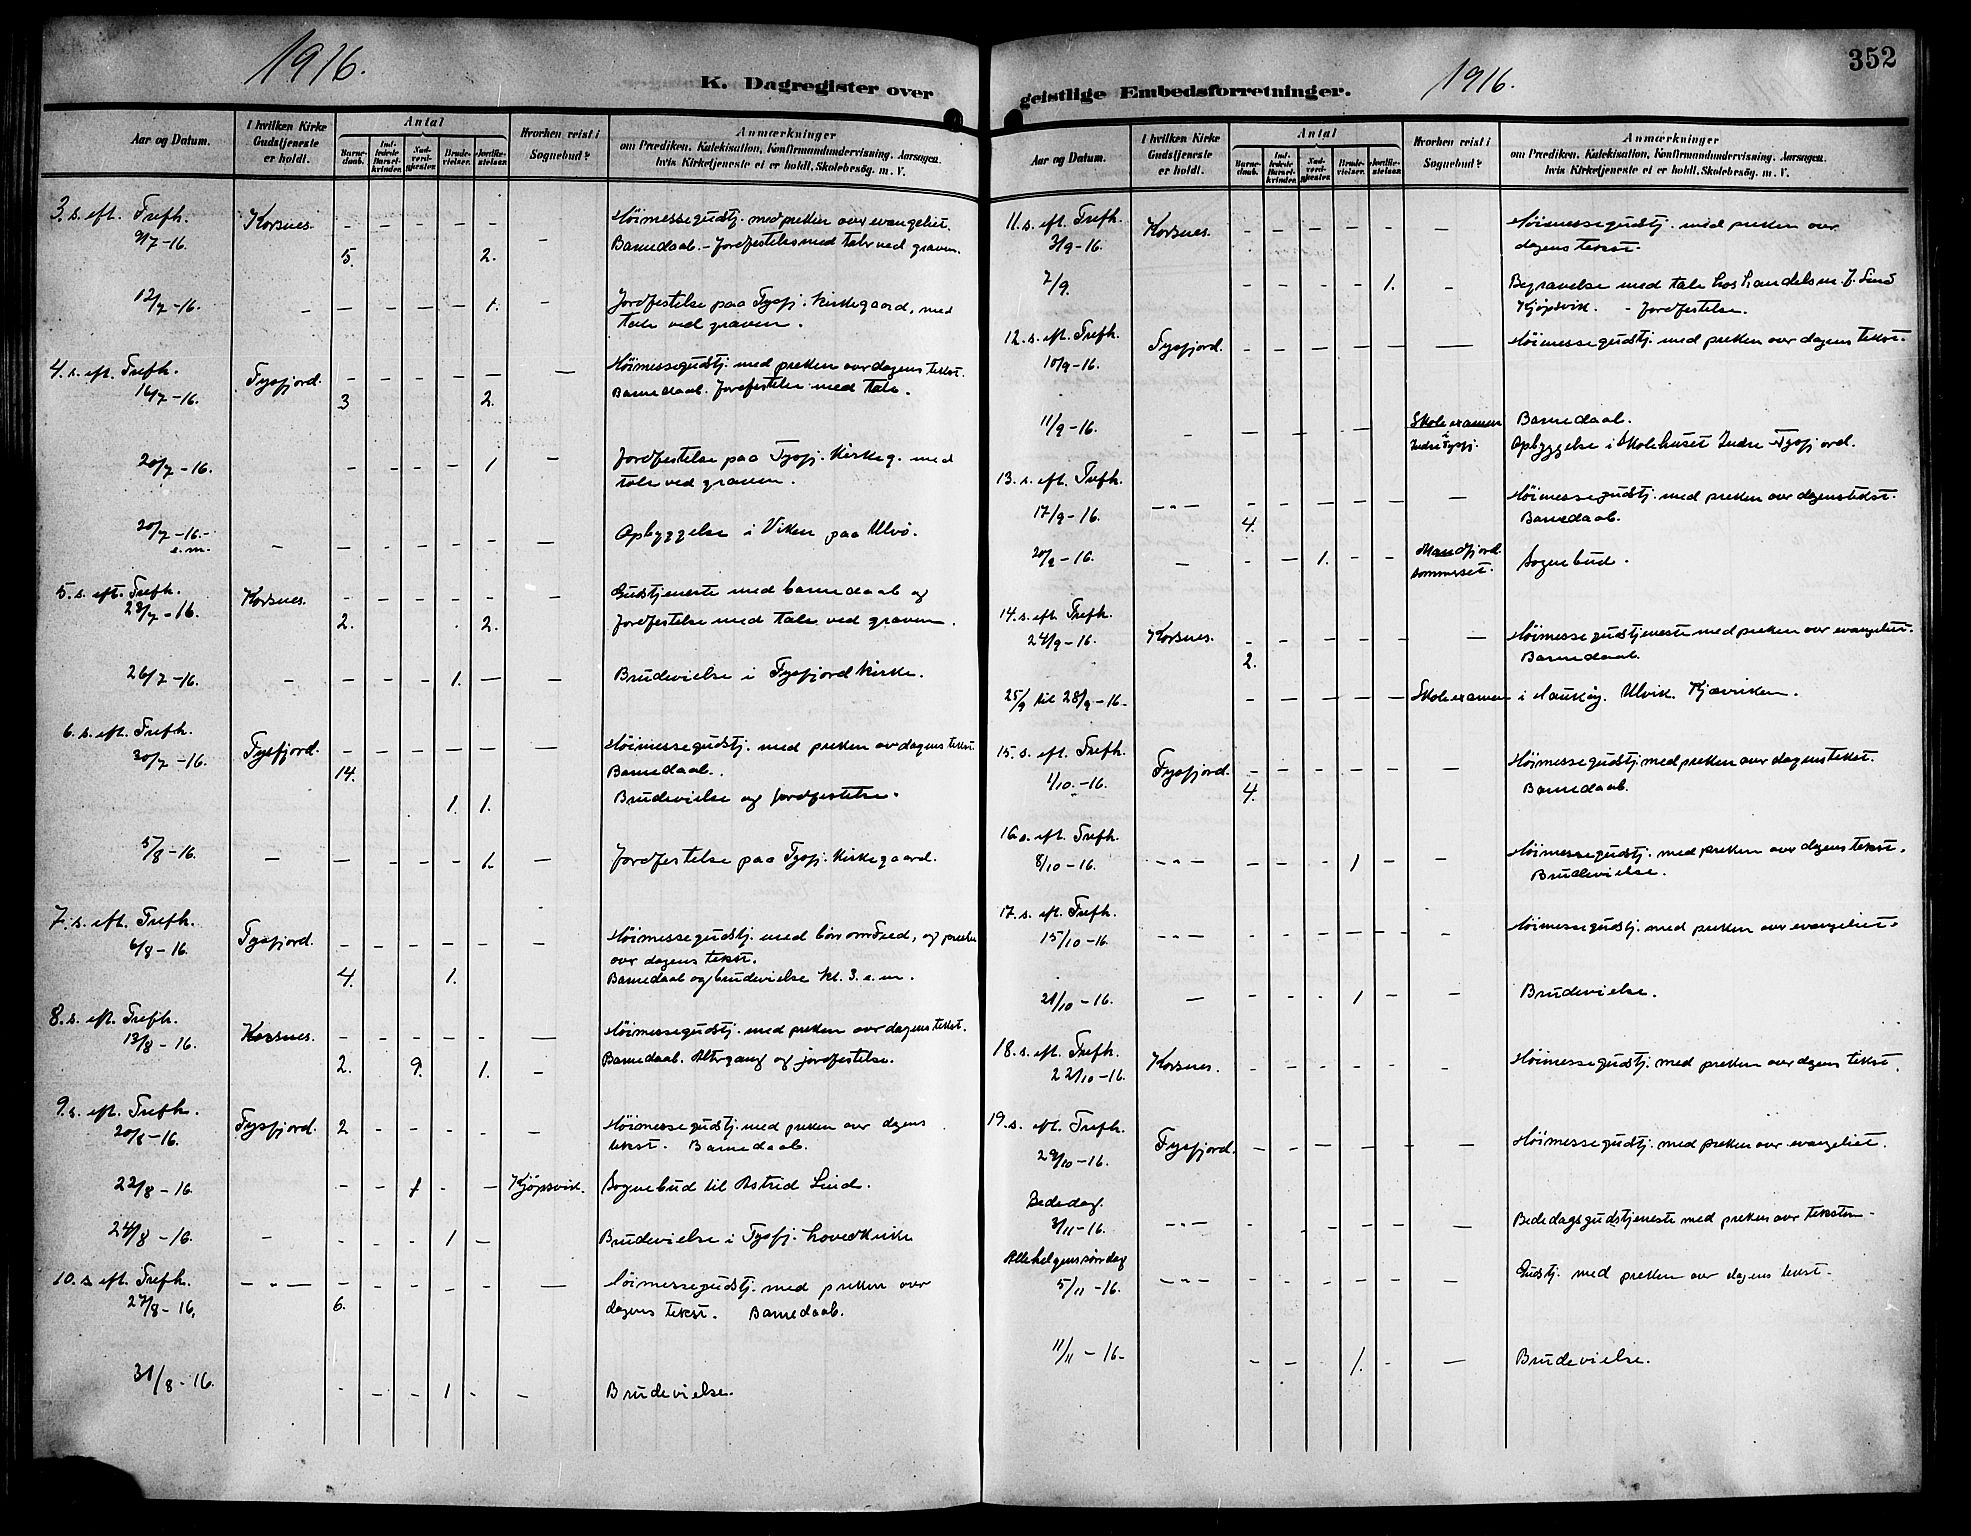 1916.
K. Dagregister over
Aar og Datum.
I hvilken Kirke Gudstjeneste er holdt.
Antal
Barnedaab.
Indledede Barselkvinder.
Nadverdgjester.
Brudevielser.
Jordfæstelser.
Hvorhen reist i Sognebud?
Anmærkninger
om Prædiken, Katekisation, Konfirmandundervisning, Aarsagen,
hvis Kirketjeneste ei er holdt, Skolebesøg, m. V.
3. s. eft. Trefh. Korsnes. – – – – – – Höimessegudstj. med preken over evangeliet.
9/7-16. 5. 2. Barnedaab. – Jordfestelse med tale ved graven.
12/7-16. – – – – – 1. – Jordfestelse paa Tysfj. kirkegaard, med
tale ved graven.
4. s. eft. Trefh. Tysfjord. – – – – – – Höimessegudstj. med preken over dagens tekst.
16/7-16. 3 2. Barnedaab. Jordfestelse med tale.
20/7-16. – – – – 1 – Jordfestelse paa Tysfj. Kirkeg. med
tale ved graven.
20/7-16.- – – – – – – – Opbyggelse i Viken paa Ulvö.
e.m.
5. s. eft. Trefh. Korsnes. – – – – – – Gudstjeneste med barnedaab og
23/7-16. 2. 2. Jordfestelse med tale ved graven.
26/7-16. – – – – 1. – – Brudevielse i Tysfjord kirke.
6. s. eft. Trefh. Tysfjord. – – – – – – Höimessegudstj. med preken over dagens tekst.
30/7-16. 14. Barnedaab.
1. 1. Brudevielse og jordfestelse.
5/8-16. – – – – – 1. – Jordfestelse paa Tysfj. Kirkegaard.
7. s. eft. Trefh. Tysfjord. – – – – – – Höimessegudstj. med bön om fred, og preken
6/8-16. over dagens tekst.
4. 1. Barnedaab og brudevielse kl. 3. e.m.
8. s. eft. Trefh. Korsnes. – – – – – – Höimessegudstj. med preken over dagens tekst.
13/8-16. 2. 9. 1. – Barnedaab. Altergang og jordfestelse.
9. s. eft. Trefh. Tysfjord. 2 – – – – – Höimessegudstj. med preken over dagens
20/8-16. tekst. Barnedaab.
22/8-16. – – 1 – – Kjöpsvik. Sognebud til Astrid Lind.
24/8-16. – – – – 1 – Brudevielse i Tysfj. hovedkirke
10. s. eft. Trefh. – " – – – – – – – Höimessegudstj. med preken over
27/8-16. 6. dagens tekst. Barnedaab.
31/8-16. – – – 1 – – Brudevielse.
352
geistlige Embedsforretninger.
1916.
Aar og Datum.
I hvilken Kirke Gudstjeneste er holdt.
Antal
Barnedaab.
Indledede Barselkvinder.
Nadverdgjester.
Brudevielser.
Jordfæstelser.
Hvorhen reist i Sognebud?
Anmærkninger
om Prædiken, Katekisation, Konfirmandundervisning, Aarsagen,
hvis Kirketjeneste ei er holdt, Skolebesøg, m. V.
11. s. eft. Trefh. Korsnes. – – – – – – Höimessegudstj. med preken over
3/9-16. dagens tekst.
7/9. – – – – 1. – Begravelse med tale hos Handelsm. J. Lind
Kjöpsvik. – Jordfestelse.
12. s. eft. Trefh. Tysfjord. – – – – – – Höimessegudstj. med preken over dagens tekst.
10/9-16.
11/9-16. – – – – Skoleexamen Barnedaab.
i Indre Tysfj. Opbyggelse i Skolehuset Indre Tysfjord.
13. s. eft. Trefh. – " – – – – – – – Höimessegudstj. med preken over dagens tekst.
17/9-16. 4. Barnedaab.
20/9-16. – – – – 1. – – Mandfjord Sognebud.
Sommerset.
14. s. eft. Trefh.
24/9-16. Korsnes. – – – – – – Höimessegudstjeneste med preken over evangeliet.
2. Barnedaab.
25/9 til 28/9-16- – – – – – Skoleexamen i Haukøy. Ulvik. Kjærviken.
15. s. eft. Trefh. Tysfjord. – – – – – – Höimessegudstj. med preken over dagens tekst.
1/10.-16. 4. Barnedaab.
16. s. eft. Trefh.
8/10-16. – " – – – – 1 – – Höimessegudstj. med preken over dagens tekst.
Brudevielse.
17. s. eft. Trefh.
15/10-16. – " – – – – – – – Höimessegudstj. med preken over evangeliet.
21/10-16. – – – – 1 – – Brudevielse.
18. s. eft. Trefh. Korsnes. – – – – – – Höimessegudstj. med preken over dagens tekst.
22/10-16.
19. s. eft. Trefh. Tysfjord. – – – – – – Höimessegudstj. med preken over evangeliet.
29/10-16.
Bededag.
3/11-16. – " – – – – – – – Bededagsgudstjeneste med preken over teksten.
Allehelgenssöndag
5/11-16. – " – – – – – – – Gudstj. med preken over dagens tekst.
11/11-16- – – – 1. – – Brudevielse.